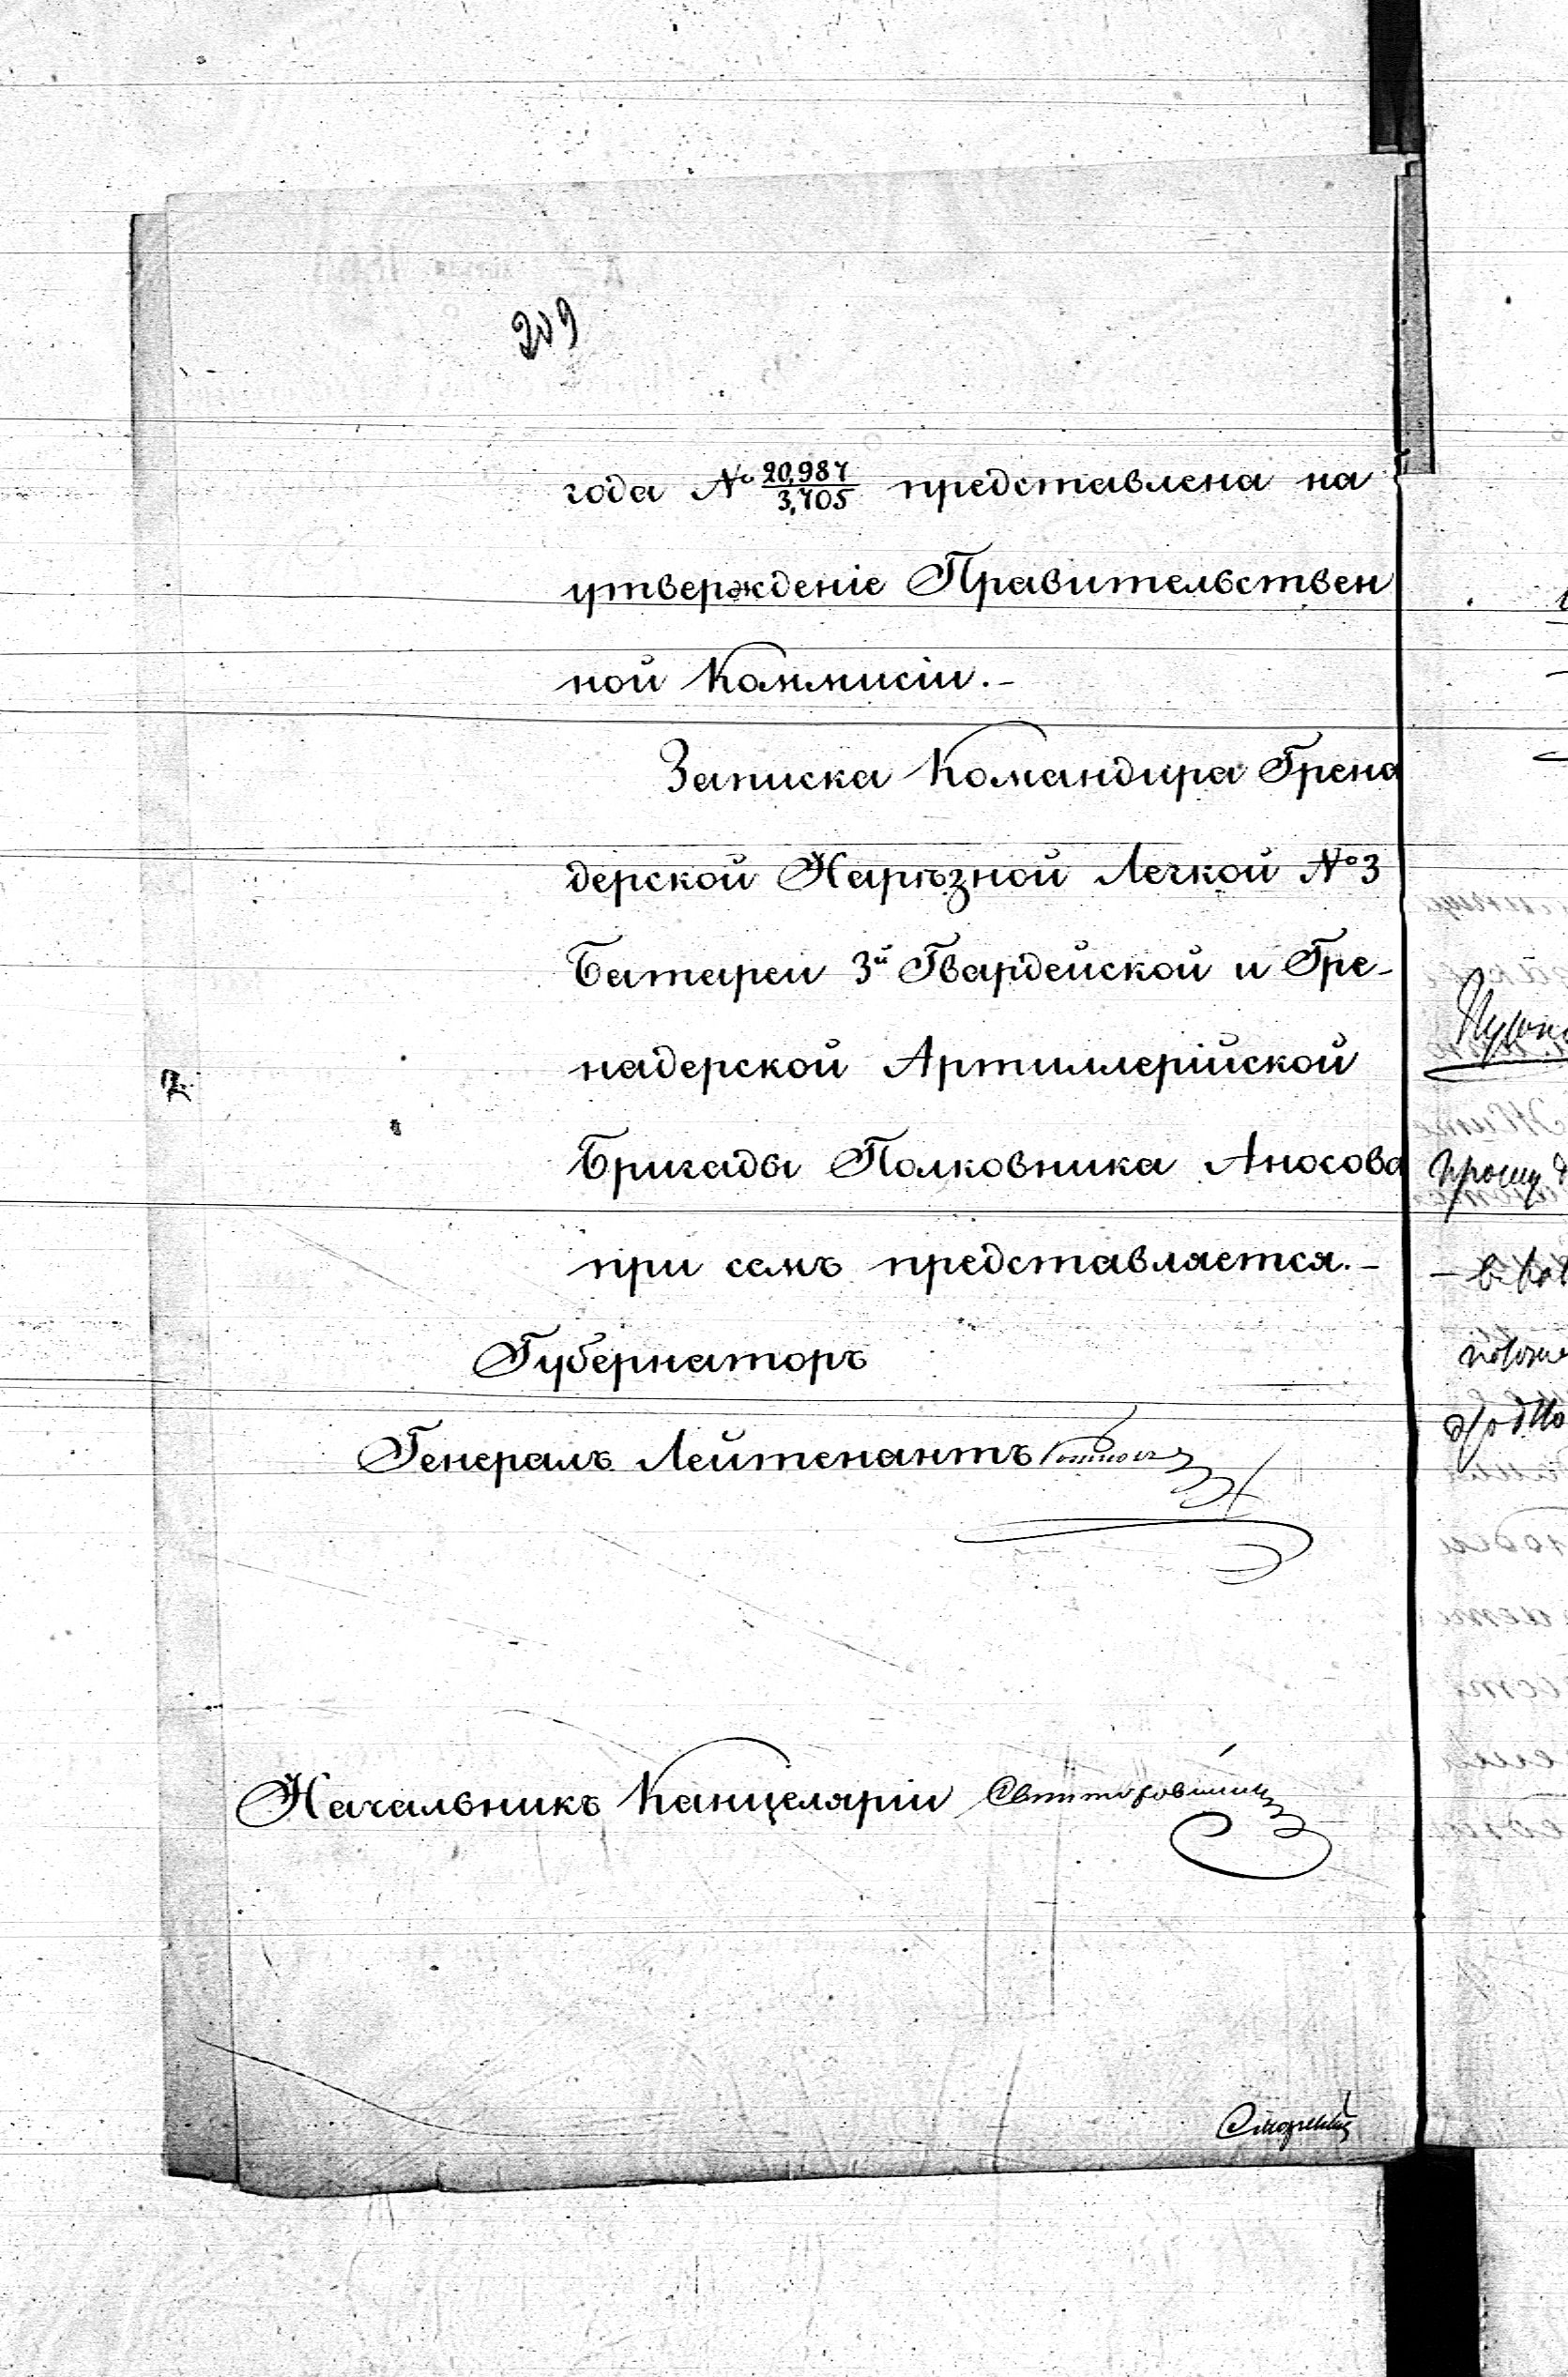 209
года № 20,987/3,705 представлена на
утвержденіе Правительствен
ной Коммисіи.-
Записка Командира Грена
дерской Нарѣзной Легкой № 3
Батареи 3й Гвардейской и Гре-
надерской Артиллерійской
Бригады Полковника Аносова
при семъ представляется.-
Губернаторъ
Генералъ Лейтенантъ
Начальникъ Канцеляріи